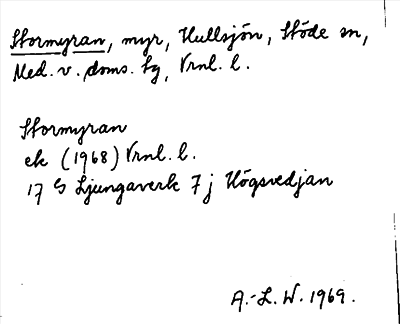 Stormyran, myr, Hullsjön, Stöde sn,
Med. v. doms. tg, Vrnl. l.
Stormyran
ek (1968) Vrnl. l.
17 G Ljungaverk 7 j Högsvedjan
A.-L. W. 1969.